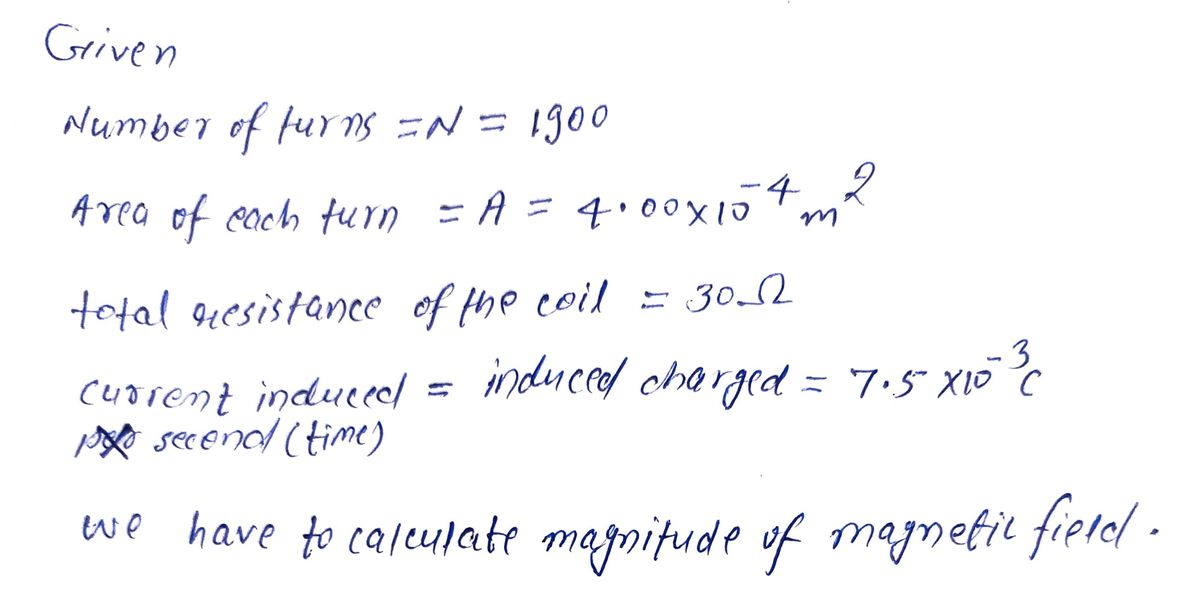 Given
Number of turns = N = 1900
Area of each turn = A = 4.00 x 10⁻⁴ m²
total resistance of the coil = 30Ω
current induced = induced charged = 7.5 x 10⁻³ C
second (time)
we have to calculate magnitude of magnetic field.